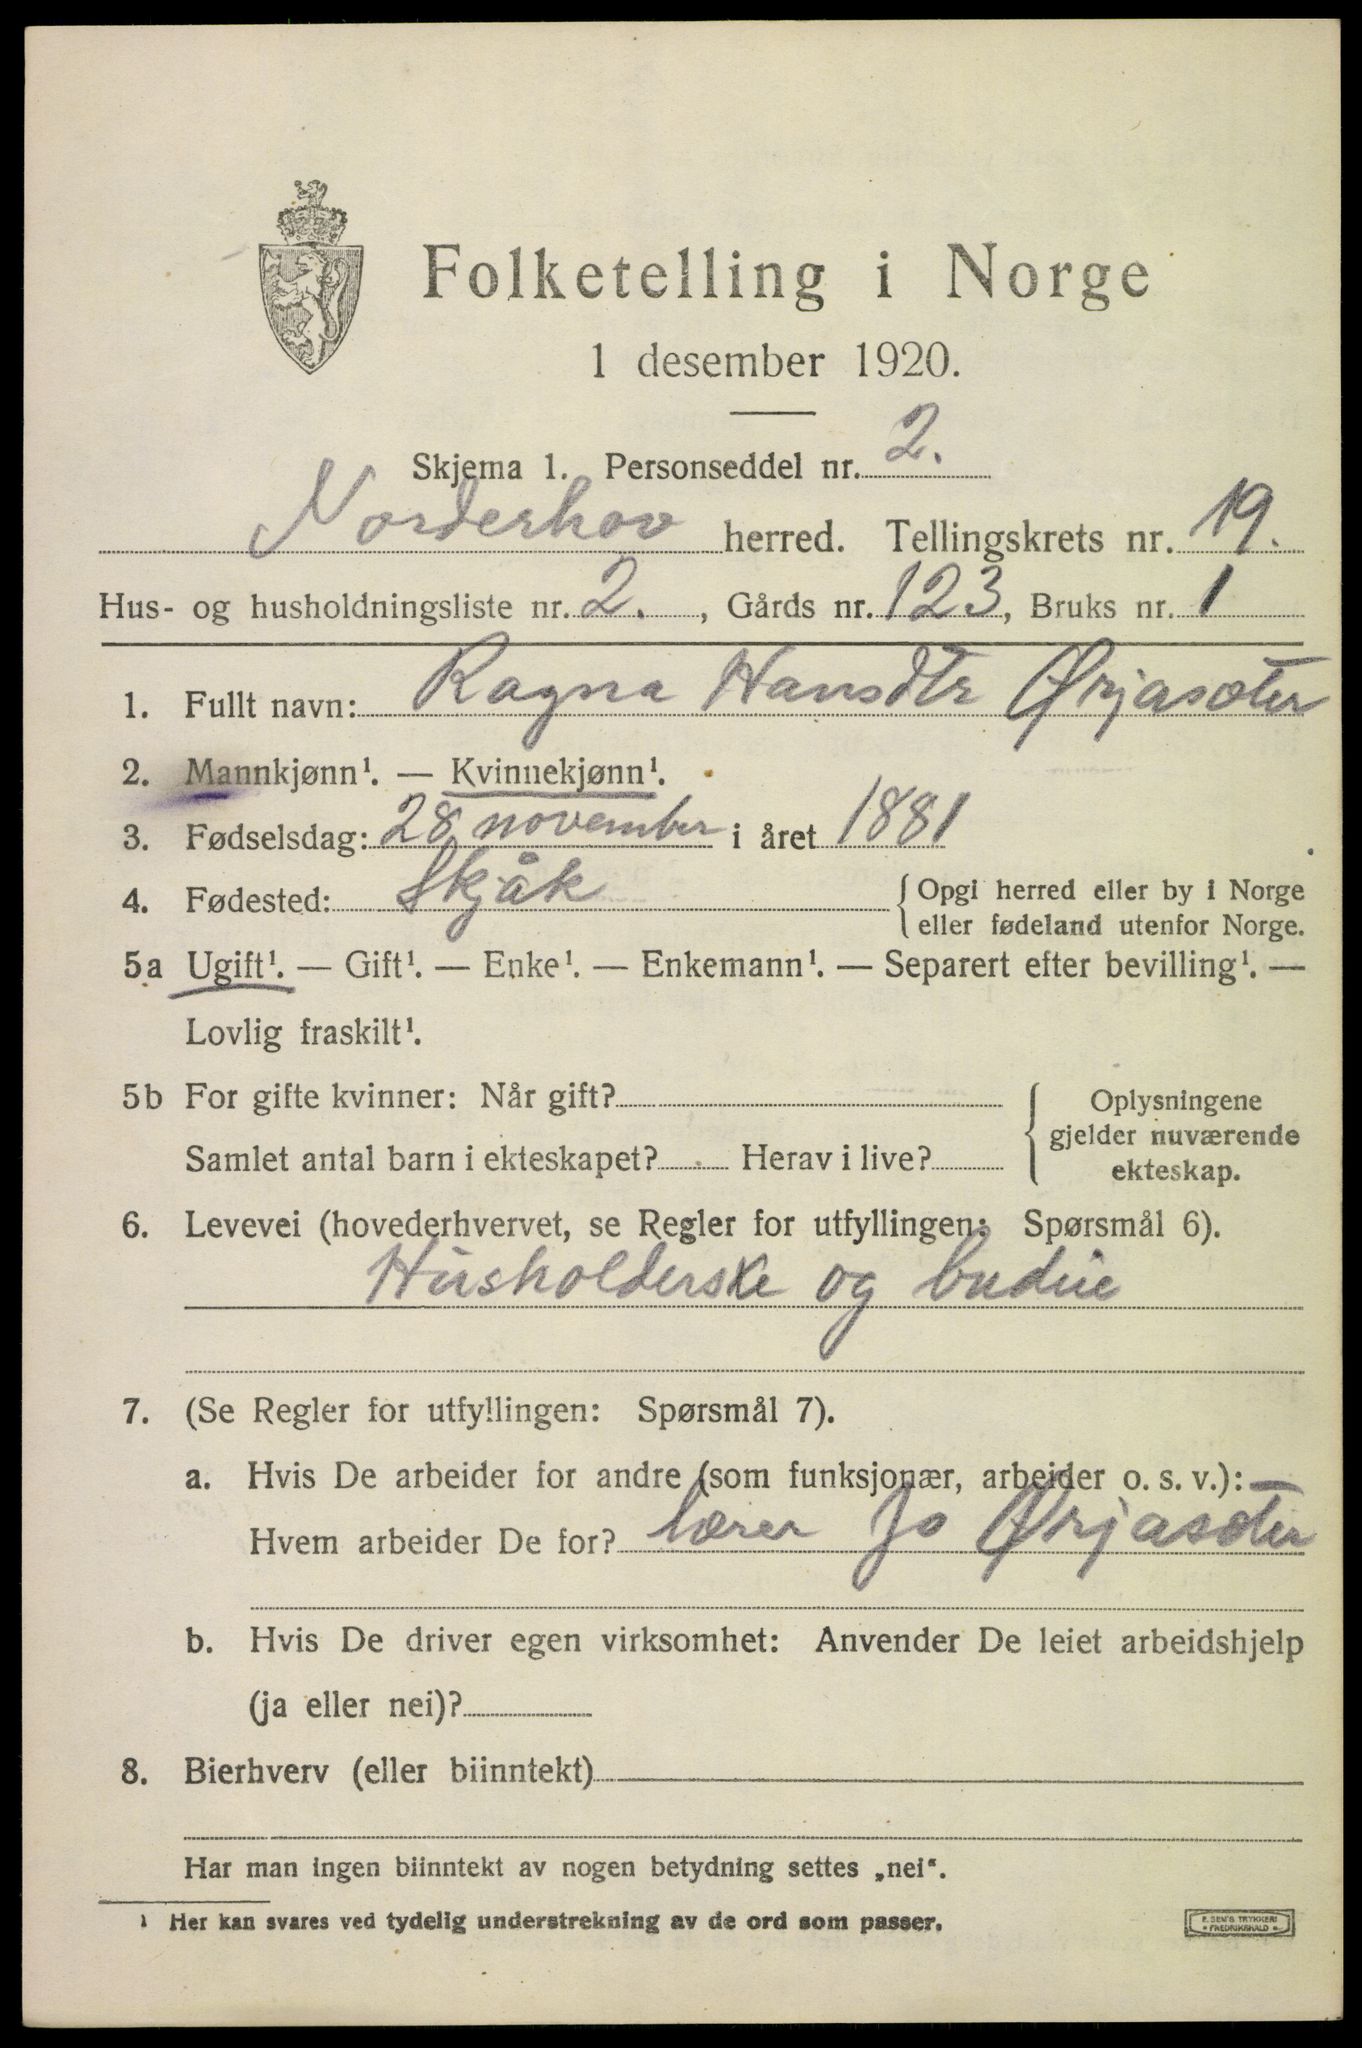 Folketelling i Norge
1 desember 1920.
Skjema 1. Personseddel nr. 2.
Norderhov herred. Tellingskrets nr. 19.
Hus- og husholdningsliste nr. 2. , Gårds nr. 123, Bruks nr. 1
1. Fullt navn: Ragna Hansdtr Ørjasæter
2. Mannkjønn¹. — Kvinnekjønn¹.
3. Fødselsdag: 28 november i året 1881
4. Fødested: Skjåk { Opgi herred eller by i Norge
eller fødeland utenfor Norge.
5a Ugift¹. — Gift¹. — Enke¹. — Enkemann¹. — Separert efter bevilling¹. —
Lovlig fraskilt¹.
5b For gifte kvinner: Når gift?
Samlet antal barn i ekteskapet? Herav i live?
{ Oplysningene
gjelder nuværende
ekteskap.
6. Levevei (hovederhvervet, se Regler for utfyllingen: Spørsmål 6).
Husholderske og budeie
7. (Se Regler for utfyllingen: Spørsmål 7).
a. Hvis De arbeider for andre (som funksjonær, arbeider o. s. v.):
Hvem arbeider De for? lærer Jo Ørjasæter
b. Hvis De driver egen virksomhet: Anvender De leiet arbeidshjelp
(ja eller nei)?
8. Bierhverv (eller biinntekt)
Har man ingen biinntekt av nogen betydning settes „nei“.
¹ Her kan svares ved tydelig understrekning av de ord som passer.
E. SEM'S TRYKKERI
FREDRIKSHALD